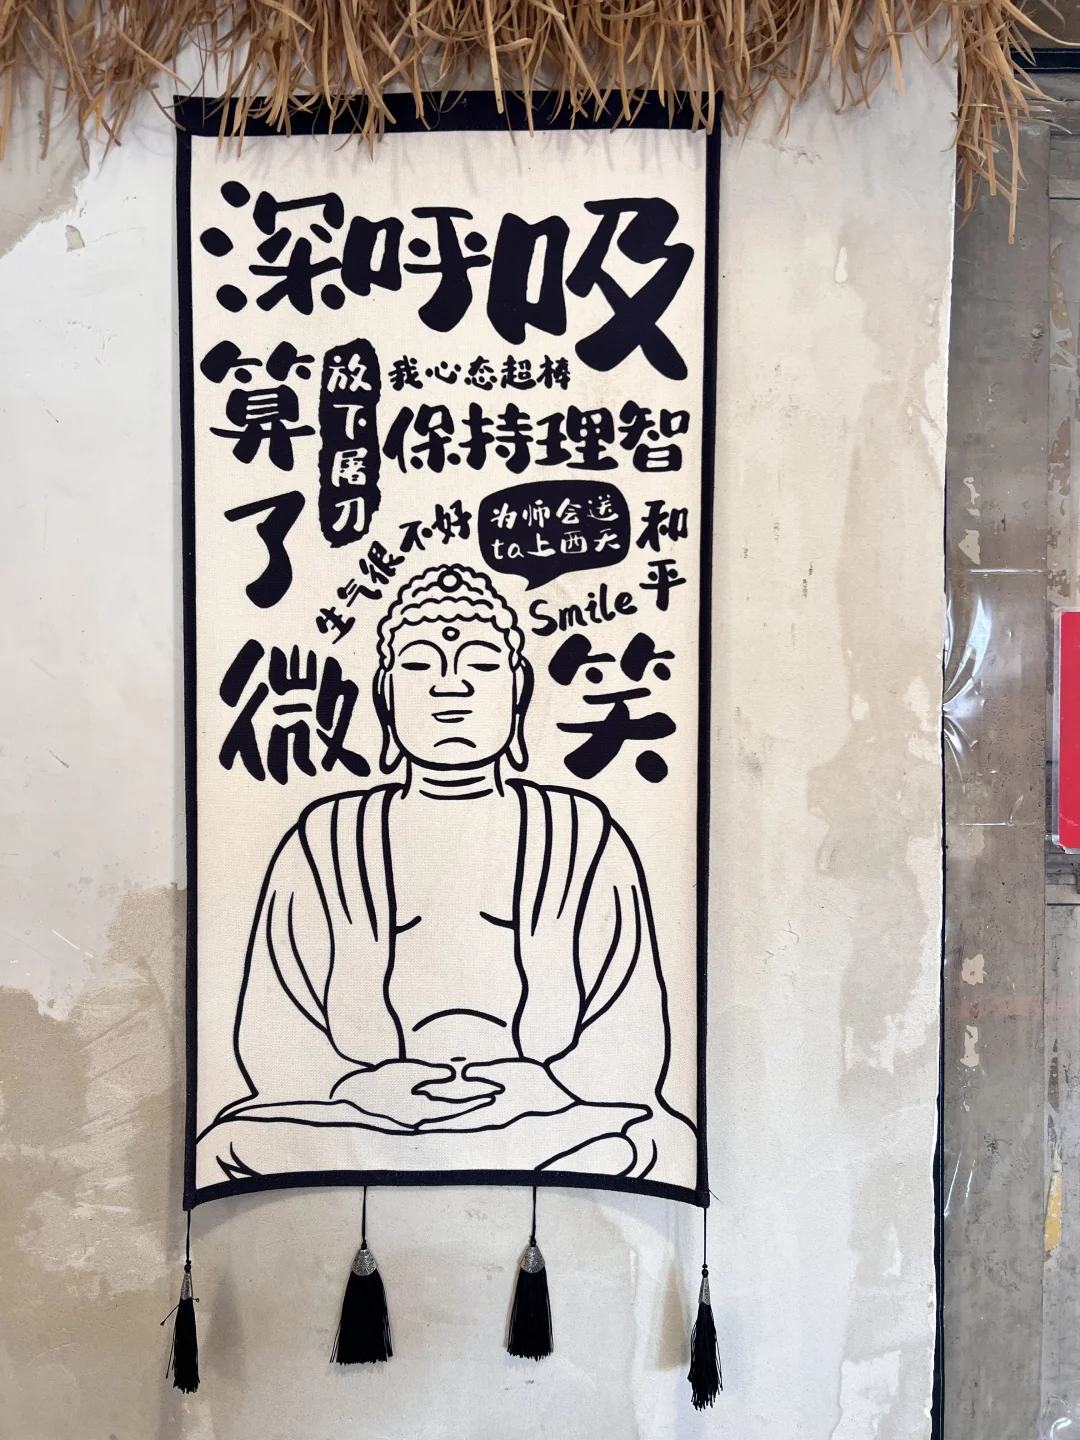 深呼吸
算了
放下屠刀
我心态超棒
保持理智
生气很不好
为师会送
ta上西天
和平
Smile
微笑